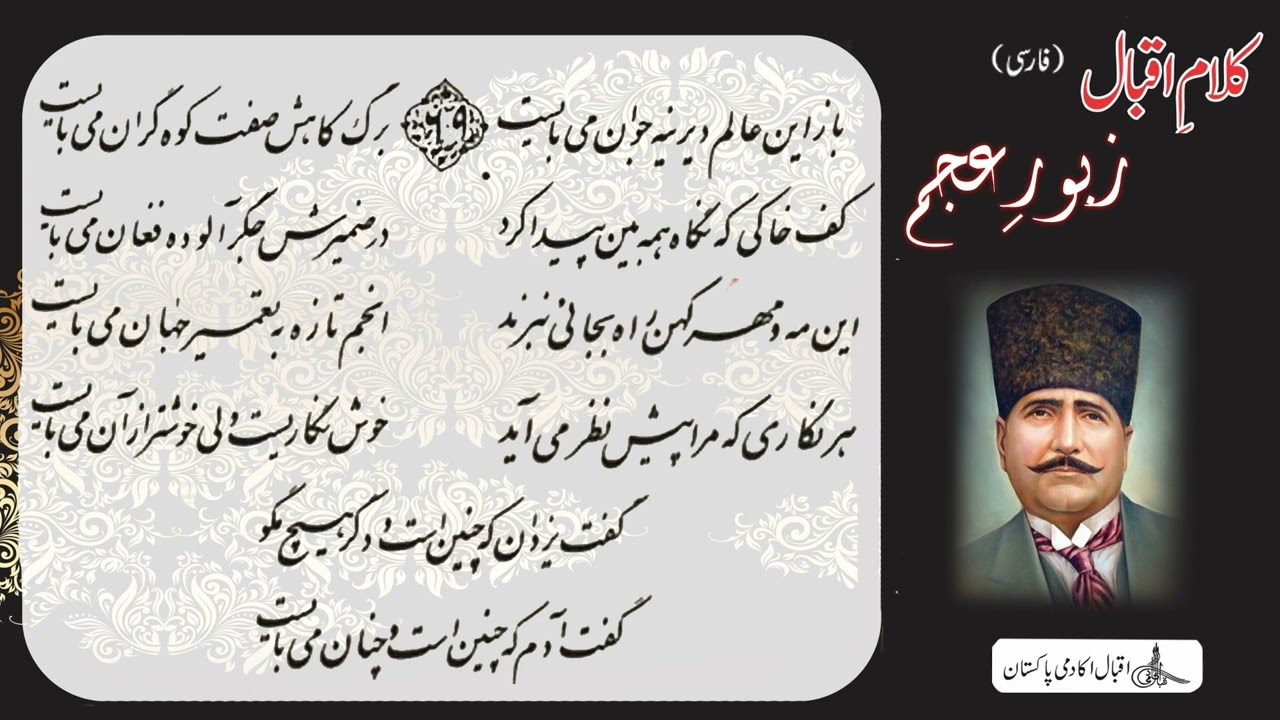 کلامِ اقبال (فارسی)
زبورِ عجم
۶۹
باز این عالم دیرینہ جوان می بایست برگ کاہش صفت کوہ گران می بایست
کف خاکی کہ نگاہ ہمہ بین پیدا کرد در ضمیرش جگر آلودہ فغان می بایست
این مہ و مہر کہن راہ بجائی نبرند انجم تازہ بہ تعمیر جہان می بایست
ہر نگاری کہ مرا پیش نظر می آید خوش نگاریست ولی خوشتر از آن می بایست
گفت یزدان کہ چنین است و دگر ہیچ مگو
گفت آدم کہ چنین است و چنان می بایست
اقبال اکادمی پاکستان